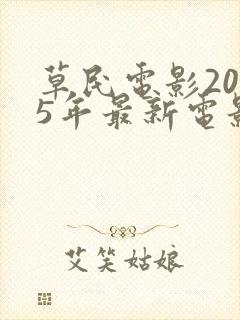 草民電影20
5年最新電影
艾笑姑娘